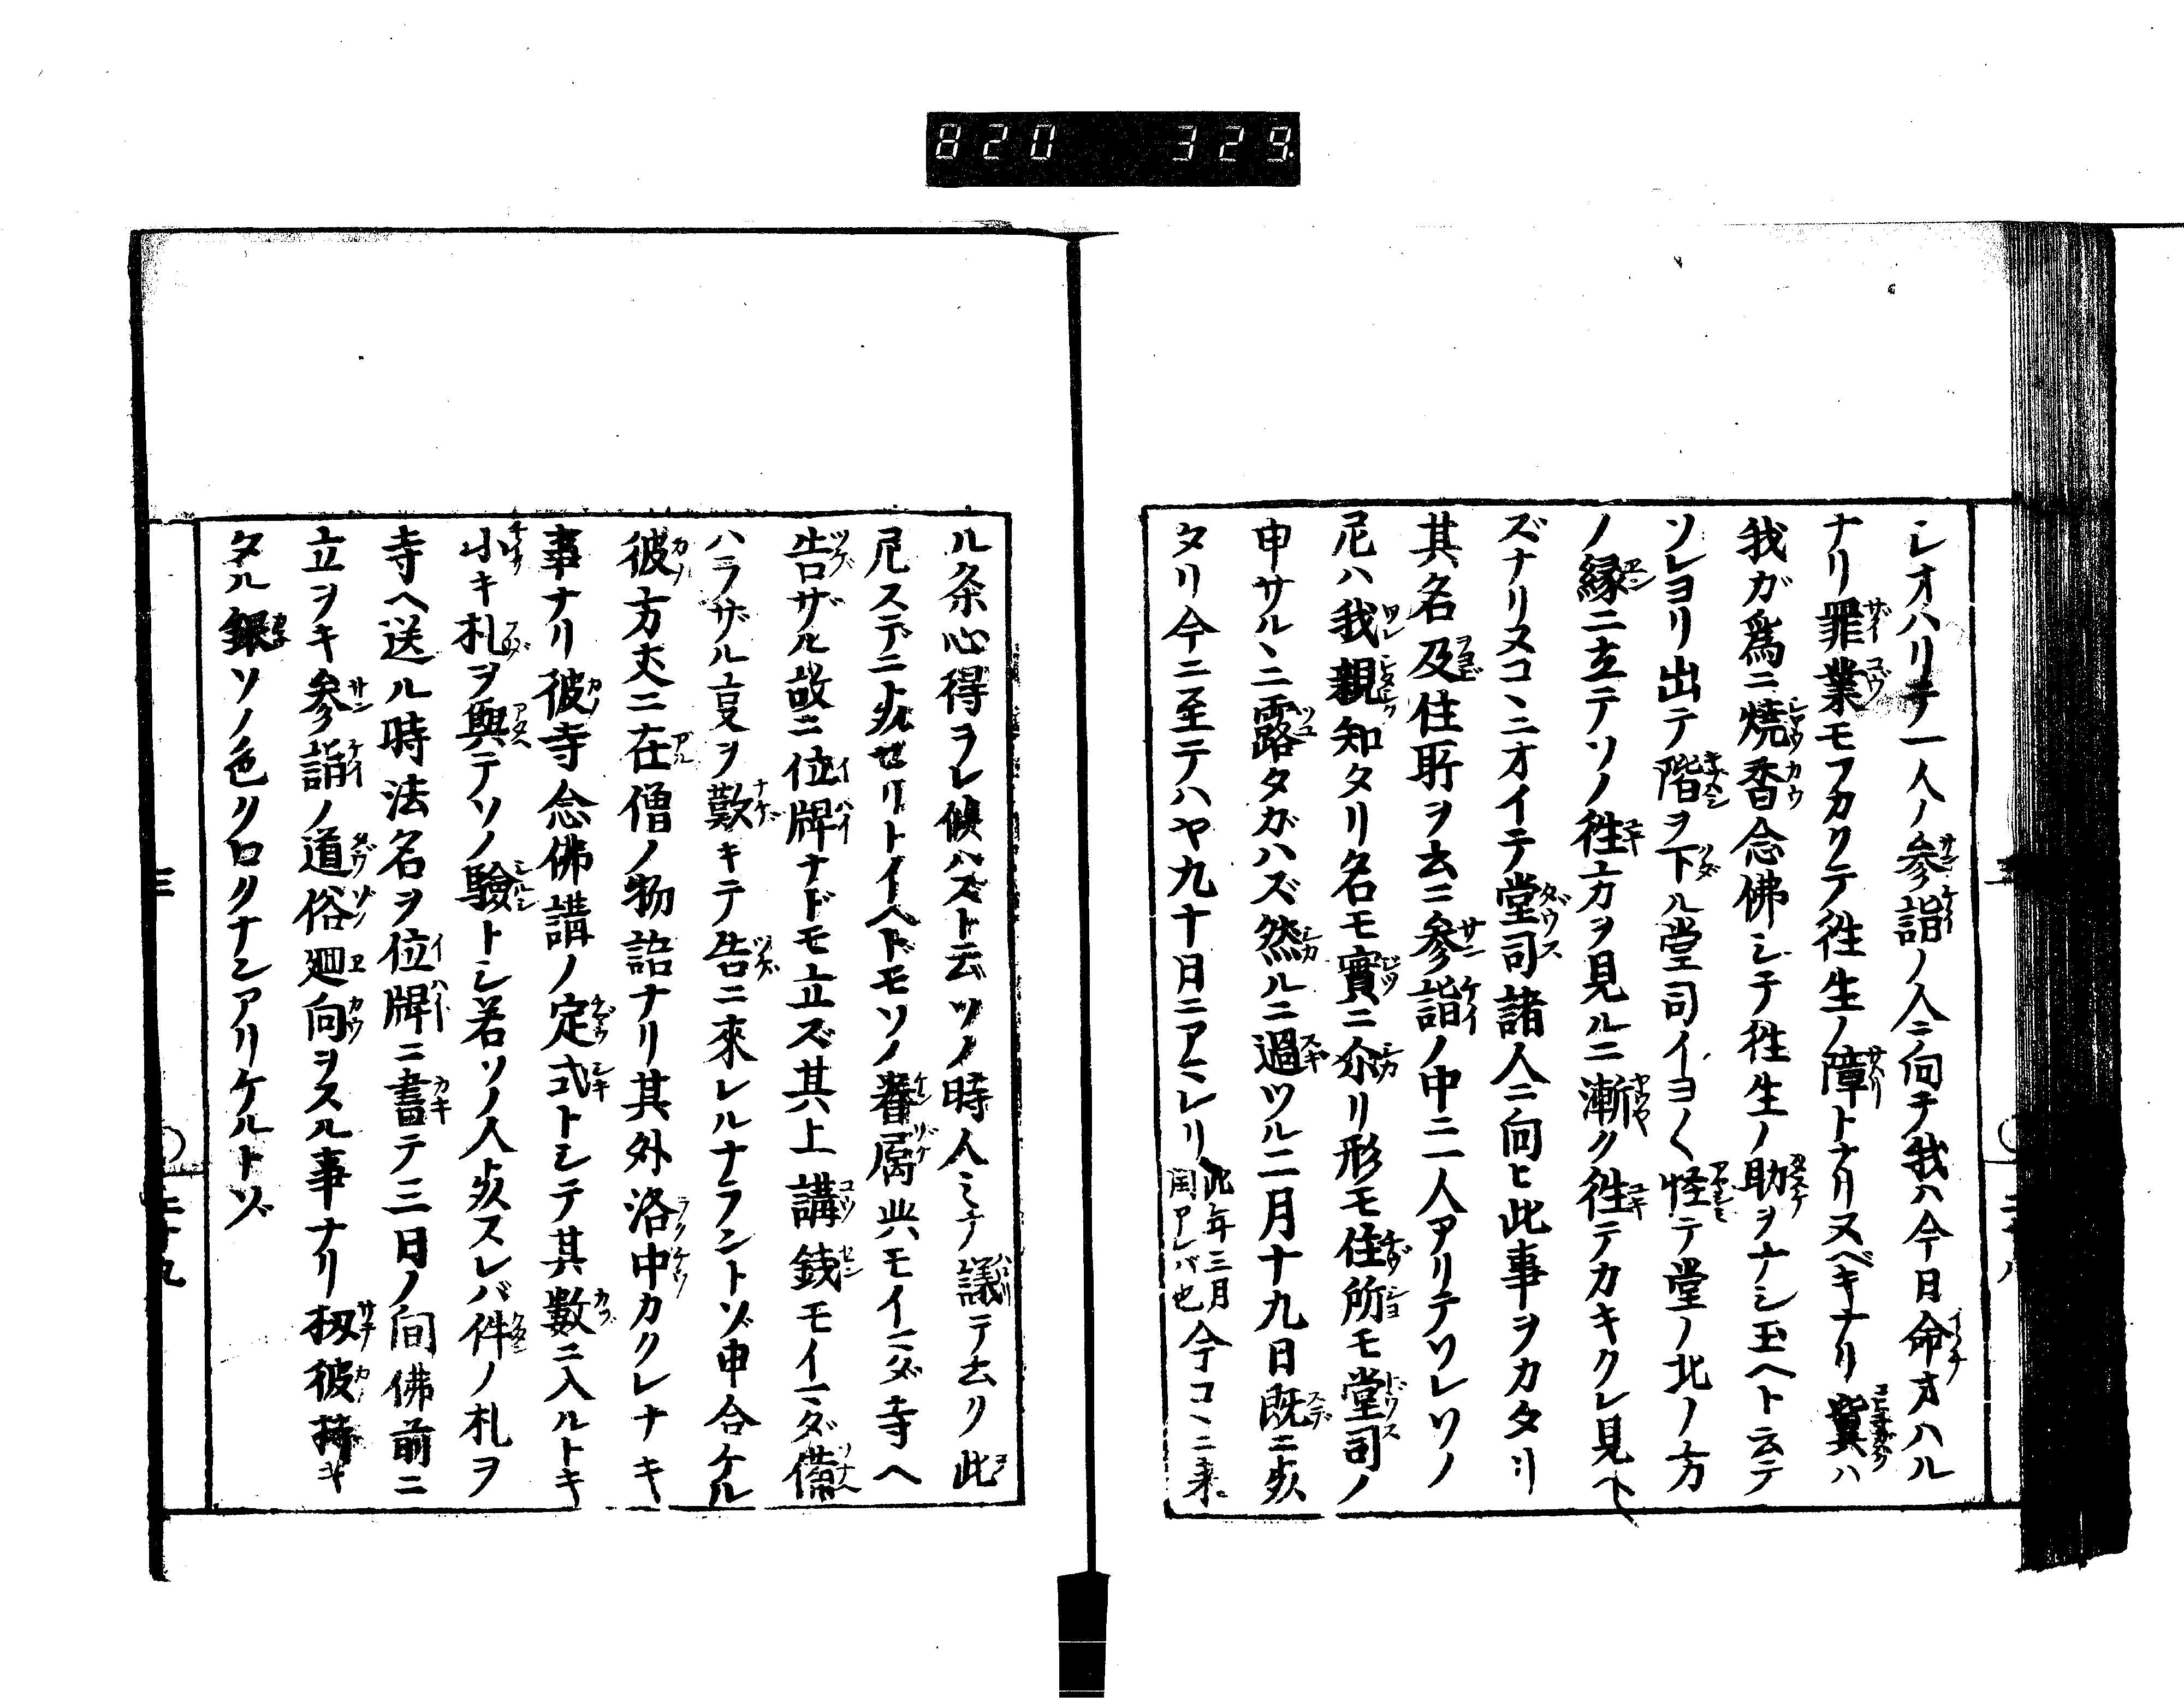 820 329
シオハリテ一人ノ参詣ノ人ニ向テ我ハ今日命オハル
ナリ罪業モフカクテ徃生ノ障トナリヌベキナリ冀ハ
我ガ爲ニ燒香念佛シテ徃生ノ助ヲナシ玉ヘト云テ
ソレヨリ出テ階ヲ下ル堂司イヨ〱怪テ堂ノ北ノ方
ノ縁ニ立テソノ徃方ヲ見ルニ漸ク徃テカキクレ見ヘ
ズナリヌコヽニオイテ堂司諸人ニ向ヒ此事ヲカタリ
其名及住所ヲ云ニ参詣ノ中ニ二人アリテワレソノ
尼ハ我親知タリ名モ實ニ尒リ形モ住所モ堂司ノ
申サルヽニ露タガハズ然ルニ過ツル二月十九日既ニ死
タリ今ニ至テハヤ九十日ニアマレリ此年三月閏アレバ也今コヽニ来
ル条心得ヲレ候ハズト云ソノ時人ミナ議テ去リ此
尼スデニ死セリトイヘドモソノ眷属共モイマダ寺ヘ
告ザル故ニ位牌ナドモ立ズ其上講錢モイマダ備
ハラザル㕝ヲ歎キテ告ニ來レルナラントゾ申合ケル
彼方丈ニ在僧ノ物語ナリ其外洛中カクレナキ
事ナリ彼寺念佛講ノ定式トシテ其数ニ入ルトキ
小キ札ヲ與テソノ驗トシ若ソノ人死スレバ件ノ札ヲ
寺ヘ送ル時法名ヲ位牌ニ書テ三日ノ間佛前ニ
立ヲキ参詣ノ道俗廻向ヲスル事ナリ扨彼持キ
タル銀ソノ色クロクナンアリケルトゾ
三
二十九